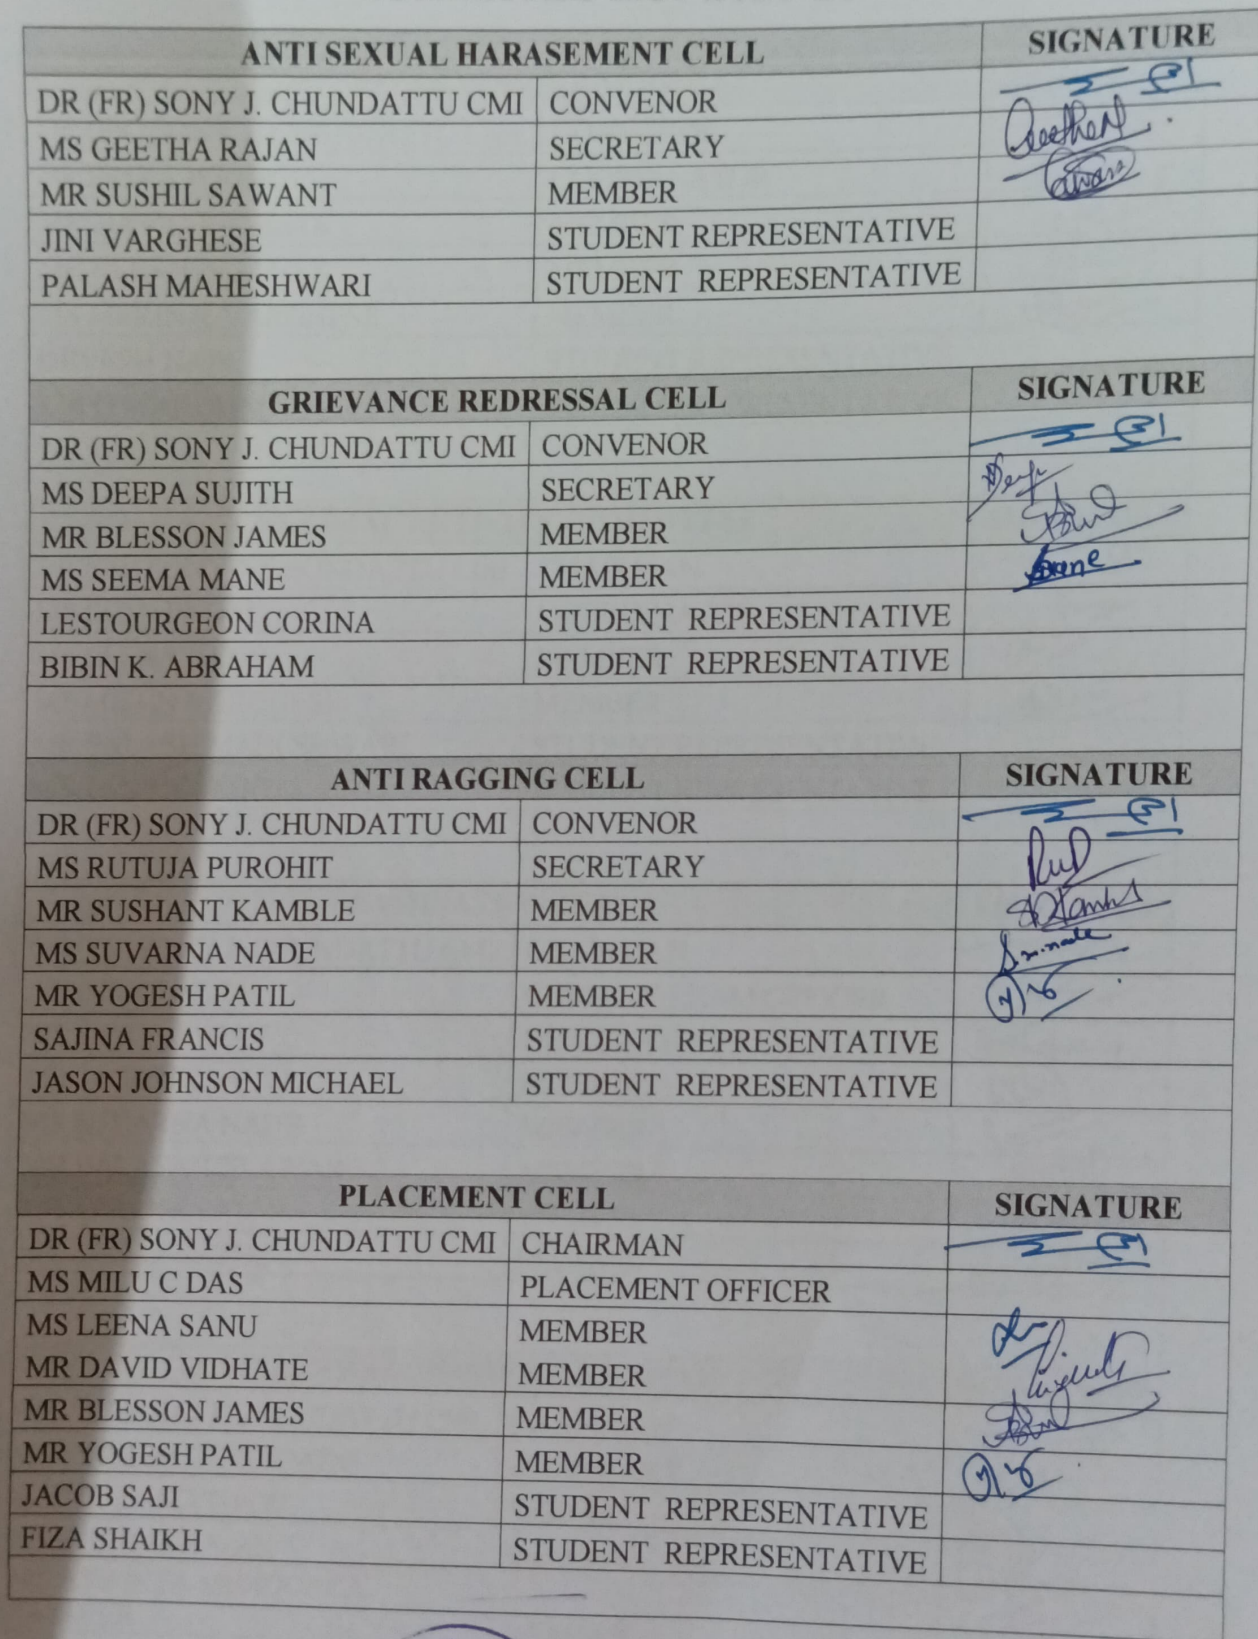 ANTI SEXUAL HARASEMENT CELL SIGNATURE
DR (FR) SONY J. CHUNDATTU CMI CONVENOR
MS GEETHA RAJAN SECRETARY
MR SUSHIL SAWANT MEMBER
JINI VARGHESE STUDENT REPRESENTATIVE
PALASH MAHESHWARI STUDENT REPRESENTATIVE
GRIEVANCE REDRESSAL CELL SIGNATURE
DR (FR) SONY J. CHUNDATTU CMI CONVENOR
MS DEEPA SUJITH SECRETARY
MR BLESSON JAMES MEMBER
MS SEEMA MANE MEMBER
LESTOURGEON CORINA STUDENT REPRESENTATIVE
BIBIN K. ABRAHAM STUDENT REPRESENTATIVE
ANTI RAGGING CELL SIGNATURE
DR (FR) SONY J. CHUNDATTU CMI CONVENOR
MS RUTUJA PUROHIT SECRETARY
MR SUSHANT KAMBLE MEMBER
MS SUVARNA NADE MEMBER
MR YOGESH PATIL MEMBER
SAJINA FRANCIS STUDENT REPRESENTATIVE
JASON JOHNSON MICHAEL STUDENT REPRESENTATIVE
PLACEMENT CELL SIGNATURE
DR (FR) SONY J. CHUNDATTU CMI CHAIRMAN
MS MILU C DAS PLACEMENT OFFICER
MS LEENA SANU MEMBER
MR DAVID VIDHATE MEMBER
MR BLESSON JAMES MEMBER
MR YOGESH PATIL MEMBER
JACOB SAJI STUDENT REPRESENTATIVE
FIZA SHAIKH STUDENT REPRESENTATIVE